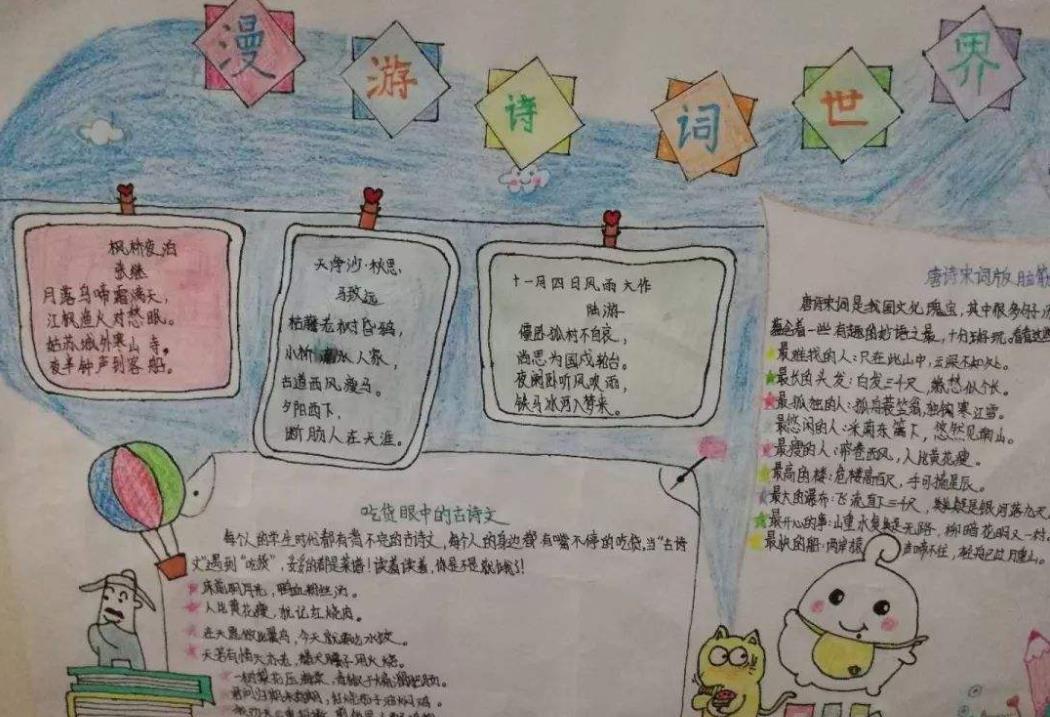 漫游诗词世界
枫桥夜泊
张继
月落乌啼霜满天，
江枫渔火对愁眠。
姑苏城外寒山寺。
夜半钟声到客船。
天净沙·秋思
马致远
枯藤老树昏鸦，
小桥流水人家，
古道西风瘦马。
夕阳西下，
断肠人在天涯。
十一月四日风雨大作
陆游
僵卧孤村不自哀，
尚思为国戍轮台。
夜阑卧听风吹雨，
铁马冰河入梦来。
唐诗宋词版脑筋
唐诗宋词是我国文化瑰宝，其中很多好
着一些有趣的妙语之最，十分好玩。看看这些
最难找的人：只在此山中，云深不知处。
最长的头发：白发三千尺，缘愁似个长。
最孤独的人：孤舟蓑笠翁，独钓寒江雪。
最悠闲的人：采菊东篱下，悠然见南山。
最瘦的人：帘卷西风，人比黄花瘦。
最高的楼：危楼高百尺，手可摘星辰。
最大的瀑布：飞流直下三千尺，疑是银河落九天
最开心的事：山重水复疑无路，柳暗花明又一村。
最快的船：两岸猿声啼不住，轻舟已过万重山。
吃货眼中的古诗文
每个人的学生时代都有背不完的古诗文，每个人的身边都有嘴不停的吃货，当“古诗
文”遇到“吃货”，妥妥的都是菜谱！读着读着，你是不是饿了！
床前明月光，鸭血粉丝汤。
人比黄花瘦，就记红烧肉。
在天愿做比翼鸟，今天就要吃水饺。
天若有情天亦老，
一树梨花压海棠，